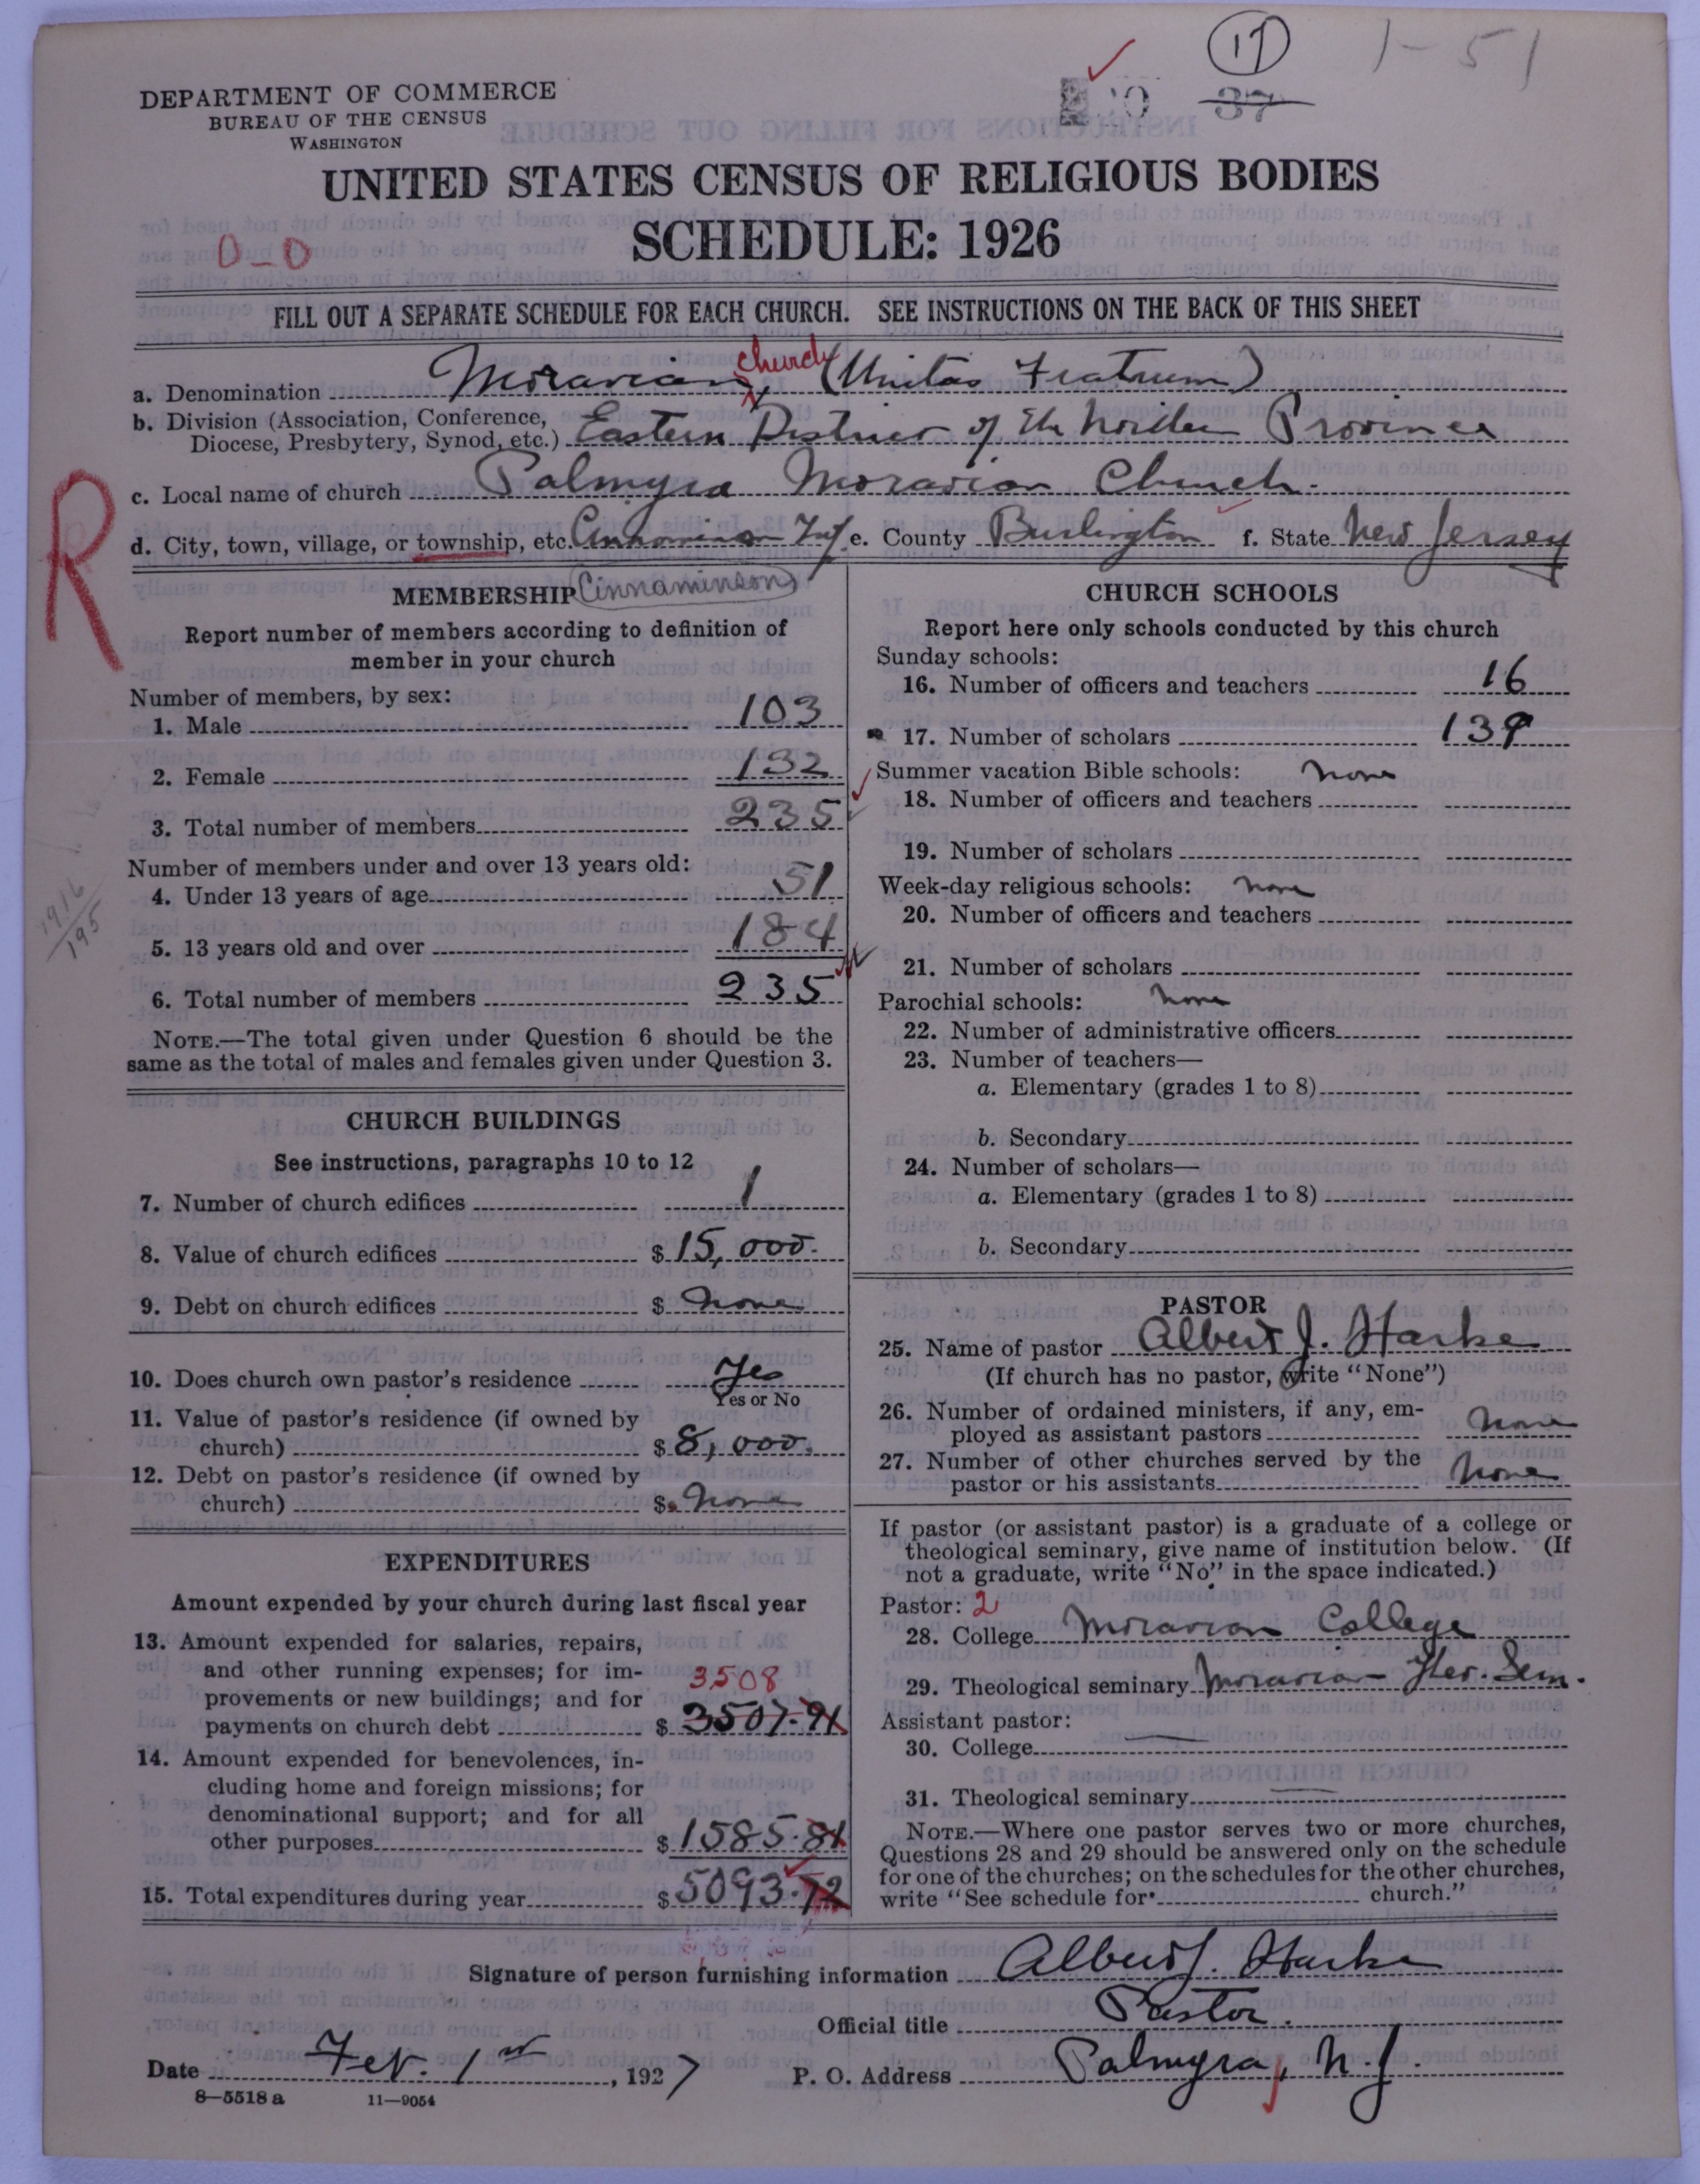 17
1-51
37
DEPARTMENT OF COMMERCE
BUREAU OF THE CENSUS
WASHINGTON
UNITED STATES CENSUS OF RELIGIOUS BODIES
SCHEDULE: 1926
0-0
FILL OUT A SEPARATE SCHEDULE FOR EACH CHURCH. SEE INSTRUCTIONS ON THE BACK OF THIS SHEET
a. Denomination Moravian Church (Unitas Fratrum)
b. Division (Association, Conference, Diocese, Presbytery, Synod, etc.) Eastern District of the Northern Province
R
c. Local name of church Palmyra Moravian Church.
d. City, town, village, or township, etc. Cinnaminson e. County Burlington f. State New Jersey
MEMBERSHIP (Cinnaminson)
Report number of members according to definition of
member in your church
Number of members, by sex:
1. Male 103
2. Female 132
3. Total number of members 235
Number of members under and over 13 years old:
4. Under 13 years of age 51
1916
195
5. 13 years old and over 184
6. Total number of members 235
NOTE.—The total given under Question 6 should be the
same as the total of males and females given under Question 3.
CHURCH BUILDINGS
See instructions, paragraphs 10 to 12
7. Number of church edifices 1
8. Value of church edifices $ 15,000.
9. Debt on church edifices $ none
10. Does church own pastor's residence Yes
Yes or No
11. Value of pastor's residence (if owned by
church) $ 8,000.
12. Debt on pastor's residence (if owned by
church) $ none
EXPENDITURES
Amount expended by your church during last fiscal year
13. Amount expended for salaries, repairs,
and other running expenses; for im-
provements or new buildings; and for 3508
payments on church debt $ 3507.91
14. Amount expended for benevolences, in-
cluding home and foreign missions; for
denominational support; and for all
other purposes $ 1585.81
15. Total expenditures during year $ 5093.72
CHURCH SCHOOLS
Report here only schools conducted by this church
Sunday schools:
16. Number of officers and teachers 16
17. Number of scholars 139
Summer vacation Bible schools: none
18. Number of officers and teachers
19. Number of scholars
Week-day religious schools: none
20. Number of officers and teachers
21. Number of scholars
Parochial schools: none
22. Number of administrative officers
23. Number of teachers—
a. Elementary (grades 1 to 8)
b. Secondary
24. Number of scholars—
a. Elementary (grades 1 to 8)
b. Secondary
PASTOR
25. Name of pastor Albert J. Harke
(If church has no pastor, write "None")
26. Number of ordained ministers, if any, em-
ployed as assistant pastors none
27. Number of other churches served by the
pastor or his assistants none
If pastor (or assistant pastor) is a graduate of a college or
theological seminary, give name of institution below. (If
not a graduate, write "No" in the space indicated.)
Pastor: 2
28. College Moravian College
29. Theological seminary Moravian Theo. Sem.
Assistant pastor:
30. College
31. Theological seminary
NOTE.—Where one pastor serves two or more churches,
Questions 28 and 29 should be answered only on the schedule
for one of the churches; on the schedules for the other churches,
write "See schedule for church."
Signature of person furnishing information Albert J. Harke
Official title Pastor.
Date Feb. 1st, 1927 P. O. Address Palmyra, N. J.
8—5518 a 11—9054